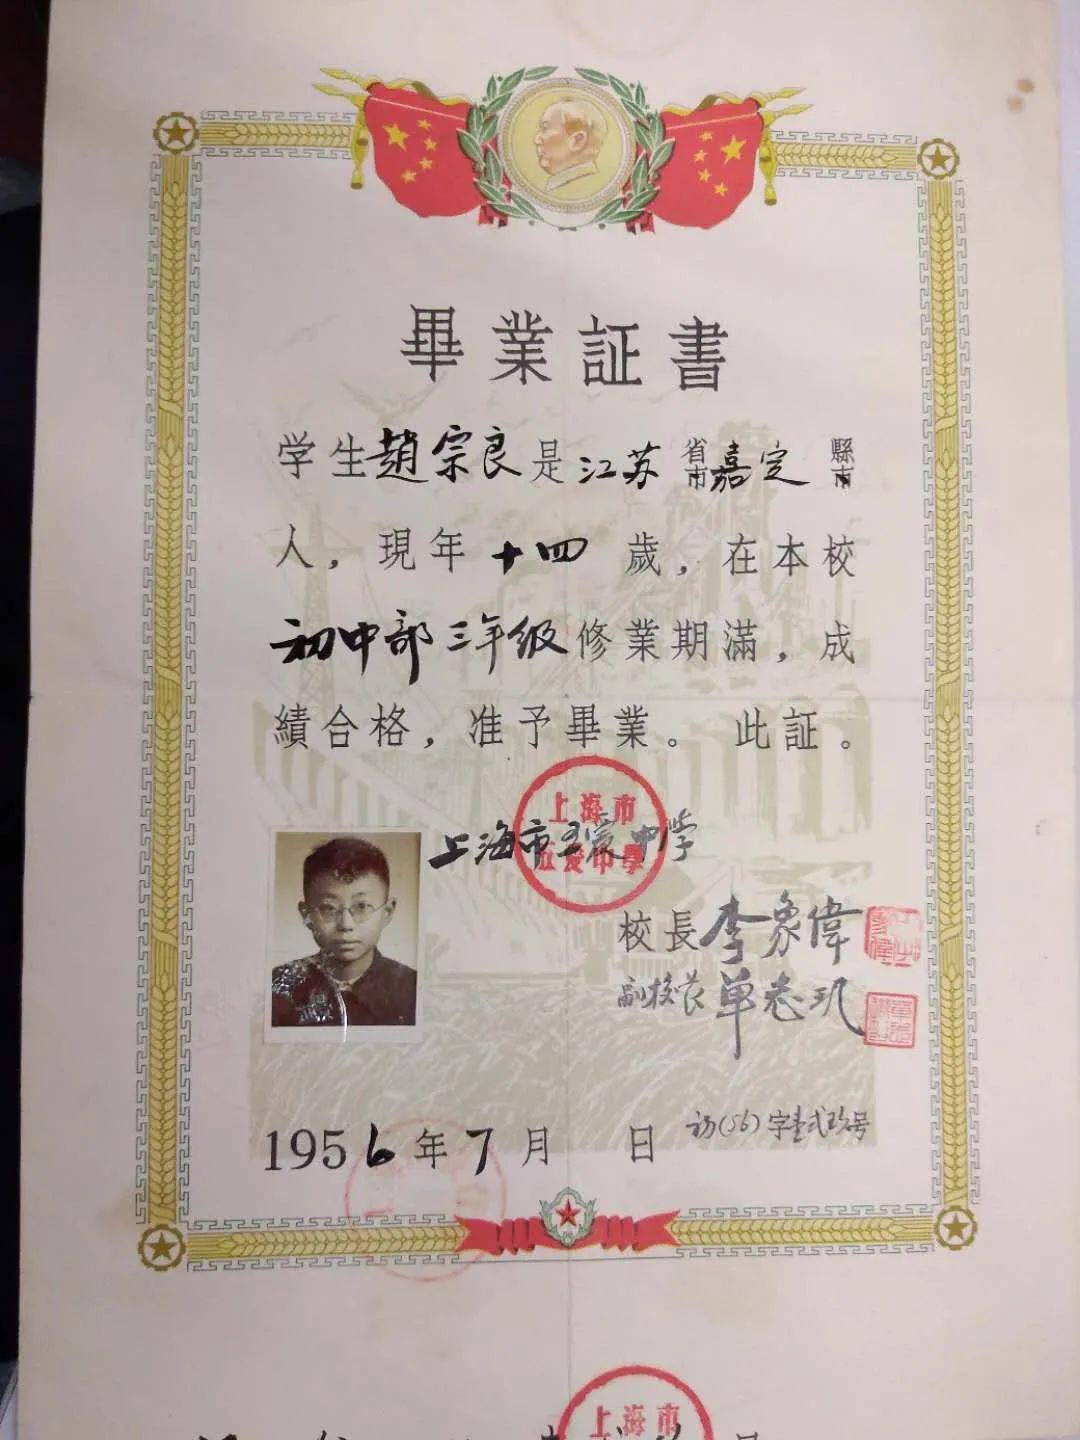 畢業証書
学生趙宗良是江苏省市嘉定縣市
人，現年十四歲，在本校
初中部三年级修業期滿，成
績合格，准予畢業。此証。
上海市五爱中学
上海市
五愛中學
校長李象偉
副校长單志玑
1956年7月 日
初(56)字壹弍玖号
上海市